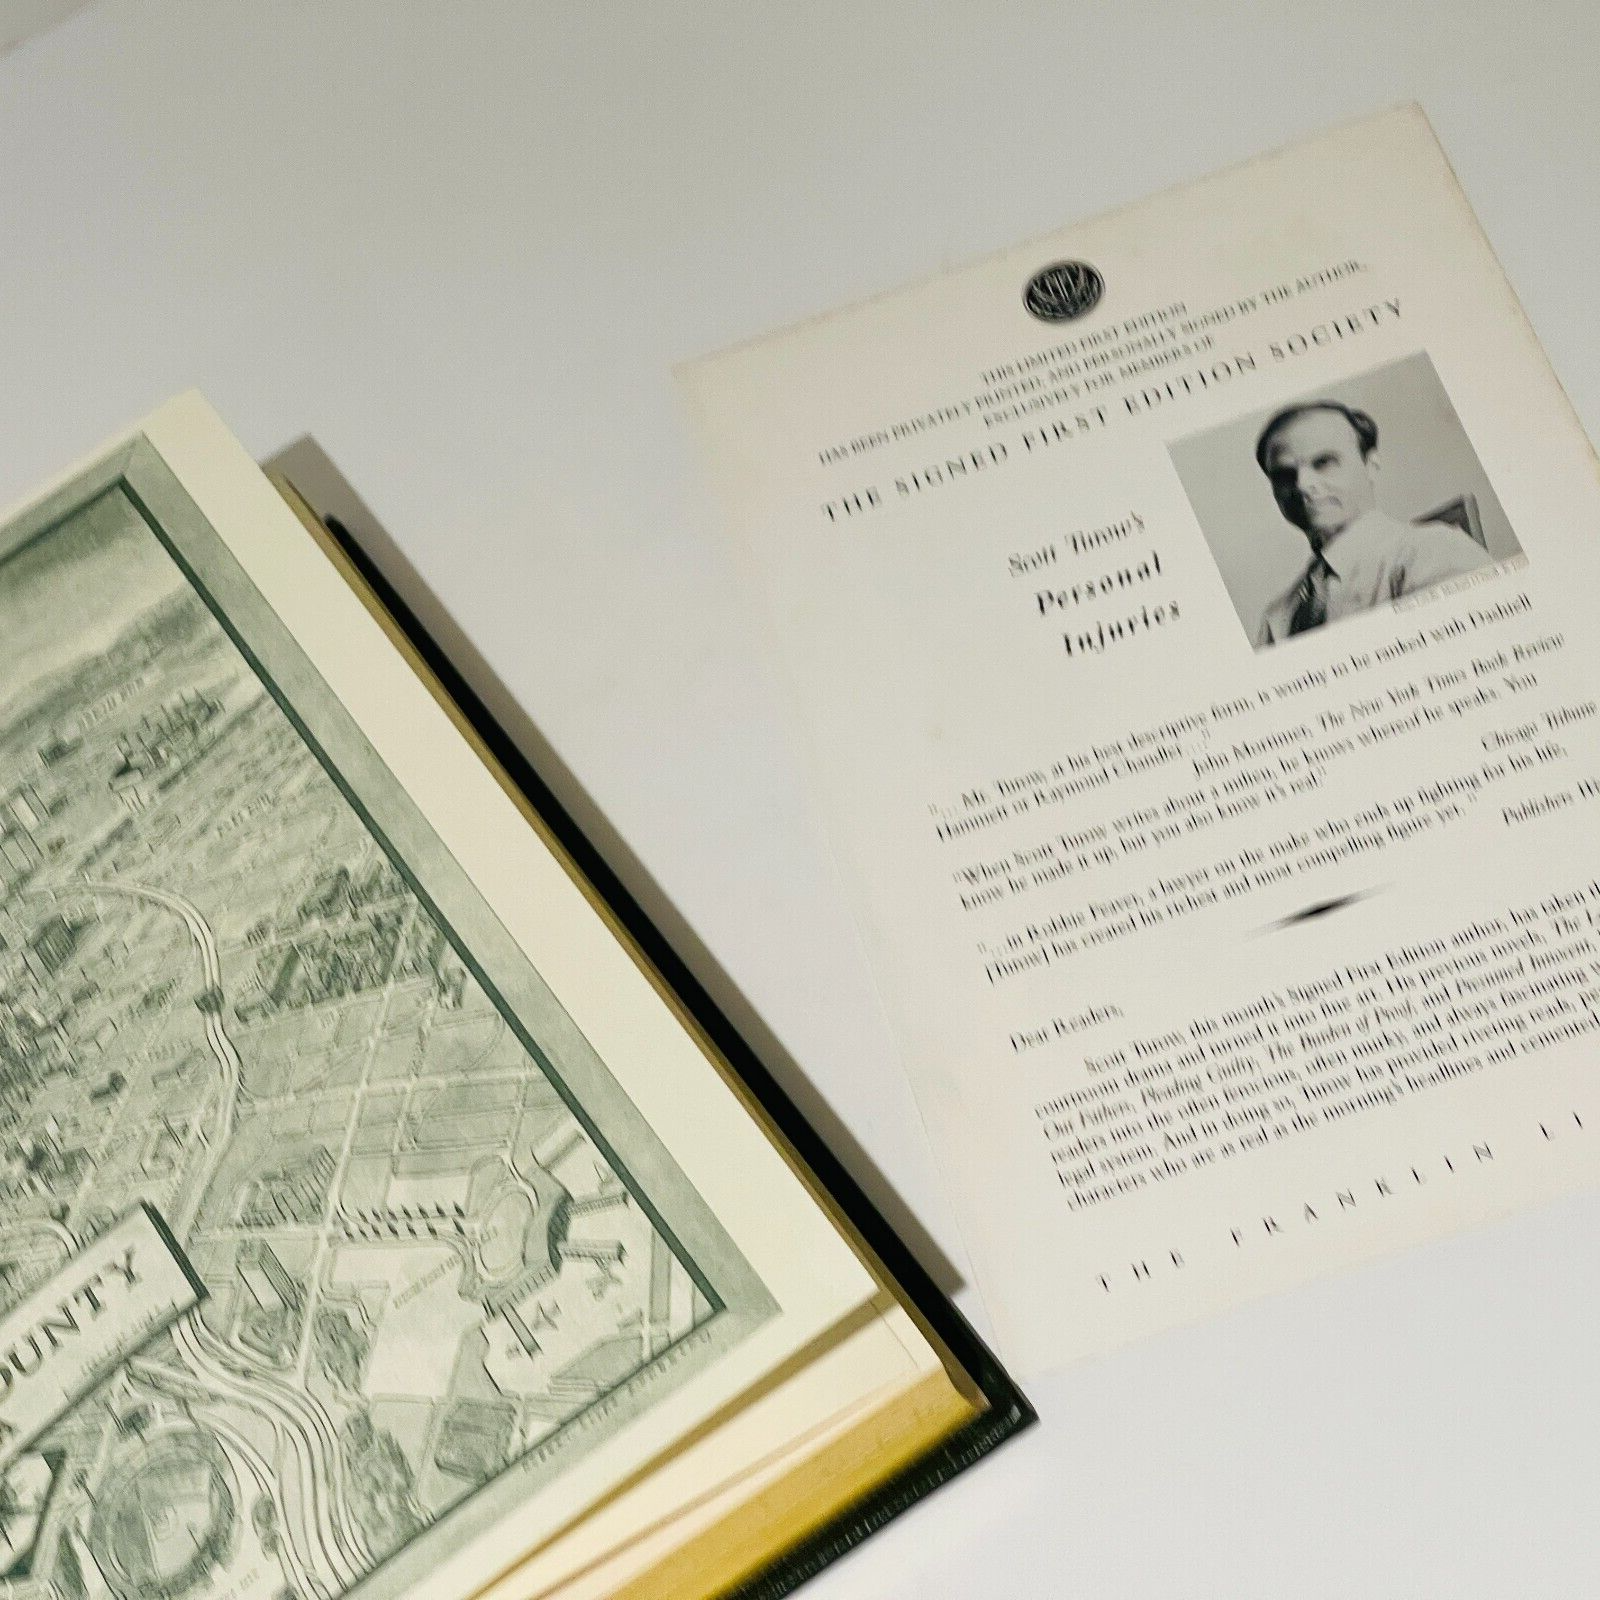 OUNTY
THIS LIMITED FIRST EDITION
HAS BEEN PRIVATELY PRINTED, AND PERSONALLY SIGNED BY THE AUTHOR,
EXCLUSIVELY FOR MEMBERS OF
THE SIGNED FIRST EDITION SOCIETY
Scott Turow's
Personal
Injuries
"... Mr. Turow, at his best descriptive form, is worthy to be ranked with Dashiell
Hammett or Raymond Chandler ..."
John Mortimer, The New York Times Book Review
"When Scott Turow writes about a milieu, he knows whereof he speaks. You
know he made it up, but you also know it's real."
Chicago Tribune
"...in Robbie Feaver, a lawyer on the make who ends up fighting for his life,
[Turow] has created his richest and most compelling figure yet."
Publishers
Dear Readers,
Scott Turow, this month's Signed First Edition author, has taken
courtroom drama and turned it into fine art. His previous novels, The
Our Fathers, Pleading Guilty, The Burden of Proof, and Presumed Innocent,
readers into the often ferocious, often murky, and always fascinating
legal system. And in doing so, Turow has provided riveting reads,
characters who are as real as the morning's headlines and cemented
THE FRANKLIN LI